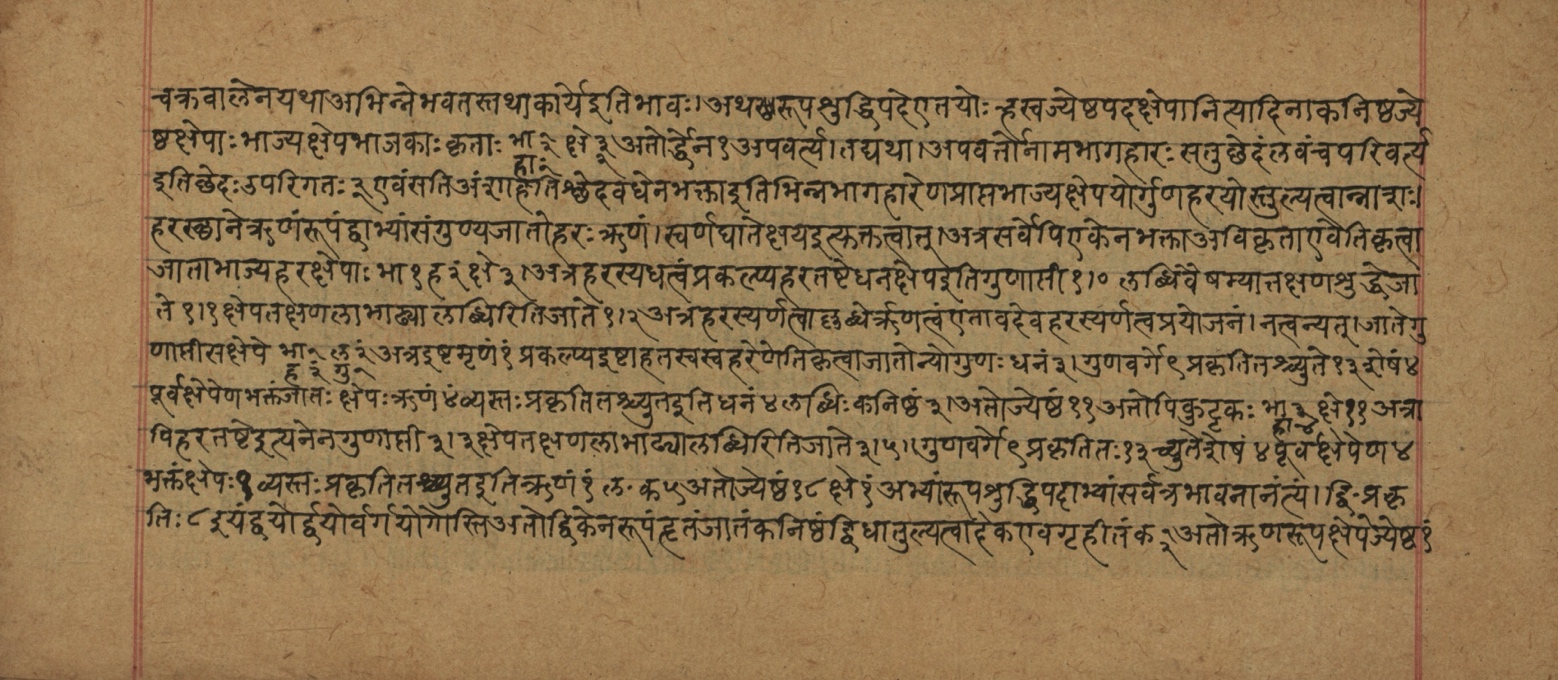 चक्रवालेनयथाअभिन्नेभवतस्तथाकार्येइतिभावः।अथरूपशुद्धिपदेएतयोःऱ्हस्वज्येष्ठपदक्षेपानित्यादिनाकनिष्ठज्ये
ष्ठक्षेपाःभाज्यक्षेपभाजकाःकृताः भा ३ क्षे ३ हा २ अतोर्द्धेन१अपवर्त्य।तद्यथा।अपवर्त्तोनामभागहारः सतुछेदंलवंचपरिवर्त्य
इतिछेदःउपरिगतः २एवंसतिअंशाहतिश्छेदवधेनभक्ताइतिभिन्नभागहारेणप्राप्तभाज्यक्षेपयोर्गुणहरयोस्तुल्यत्वान्नाशः।
हरस्छानेऋणंरूपंद्वाभ्यांसंगुण्यजातोहरःऋणं।स्वर्णघातेक्षयइत्युक्तत्वात्।अत्रसर्वेपिएकेनभक्ताअविकृताएवेतिकृत्वा
जाताभाज्यहरक्षेपाः भा१ह२ंक्षे३।अत्रहरस्यधत्वंप्रकल्प्यहरतष्टेधनक्षेपइतिगुणाप्ती१।० लब्धिवैषम्यात्तक्षणशुद्धेजा
ते १।१क्षेपतक्षणलाभाढ्यालब्धिरितिजाते१।२अत्रहरस्यर्णत्वाल्लब्धेर्ऋणत्वंएतावदेवहरस्यर्णत्वप्रयोजनं।नत्वन्यत्।जातेगु
णाप्तीसक्षेपे भा१ ल२ं ह२ं गु१ अत्रइष्टमृणं१ंप्रकल्प्यइष्टाहतस्वस्वहरेणेतिकृत्वाजातोन्योगुणः धनं३।गुणवर्गे९प्रकृतितश्च्युते१३शेषं४
पूर्वक्षेपेणभक्तंजातः क्षेपःऋणं४ंव्यस्तःप्रकृतितश्च्युतइतिधनं४लब्धिःकनिष्ठं३।अतोज्येष्ठं११अतोपिकुट्टकः भा३ क्षे११ हा४ अत्रा
पिहरतष्टेइत्यनेनगुणाप्ती३।२क्षेपतक्षणलाभाढ्यालब्धिरितिजाते३।५।गुणवर्गे९प्रकृतितः१३च्युतेशेषं४पूर्वक्षेपेण४
भक्तंक्षेपः१व्यस्तःप्रकृतितश्च्युतइतिऋणं१ं ल॰ क५अतोज्येष्ठं१८क्षे१ंअभ्यांरूपशुद्धिपदाभ्यांसर्वत्रभावनानंत्यं।द्वि॰प्रकृ
तिः८इयंद्वयोर्द्वयोर्वर्गयोर्गोस्तिअतोद्विकेनरूपंहृतंजातंकनिष्ठंद्विधातुल्यत्वादेकएवगृहीतंक२अतोऋणरूपक्षेपेज्येष्ठं१